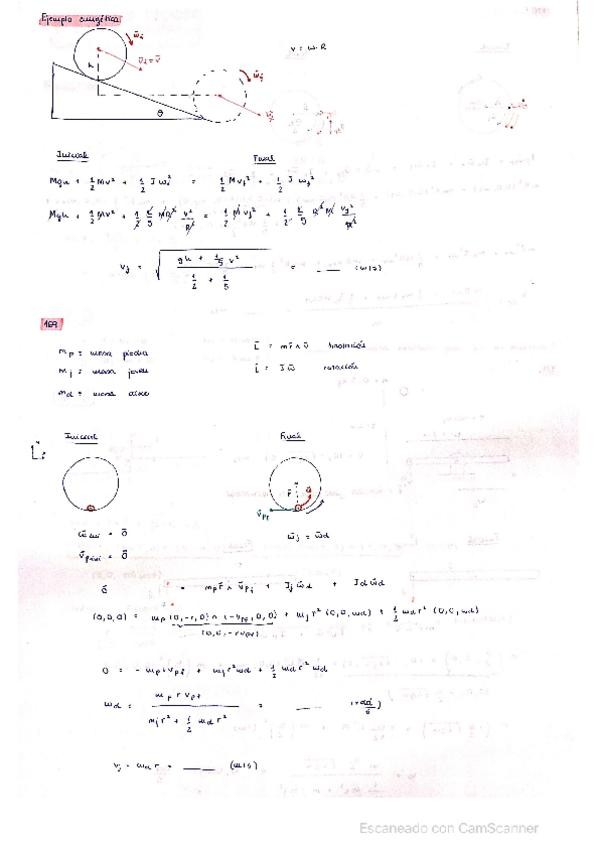 Ejemplo energética
ω̄ᵢ
v̄ᵢ = v̄
v = ω·R
h
ω̄f
v̄f
θ
Inicial
Final
Mgh + 1/2 Mv² + 1/2 J ωᵢ² = 1/2 Mvf² + 1/2 J ωf²
Mgh + 1/2 Mv² + 1/2 2/5 MR² v²/R² = 1/2 M vf² + 1/2 2/5 R² M vf²/R²
vf = √((gh + 1/5 v²)/(1/2 + 1/5)) = ___ (m/s)
169
mp = masa piedra
L̄ = m r̄ ∧ v̄ traslación
mj = masa joven
L̄ = J ω̄ rotación
md = masa disco
Inicial
Final
r̄
v̄pf
v̄pini = 0̄
ω̄j = ω̄d
0̄ = mp r̄ ∧ v̄pf + Jj ω̄d + Jd ω̄d
(0,0,0) = mp (0,-r,0) ∧ (-vpf,0,0) + mj r² (0,0,ωd) + 1/2 md r² (0,0,ωd)
(0,0,-r vpf)
0 = - mp r vpf + mj r² ωd + 1/2 md r² ωd
ωd = (mp r vpf)/(mj r² + 1/2 md r²) = ___ (rad/s)
vj = ωd r = ___ (m/s)
Escaneado con CamScanner